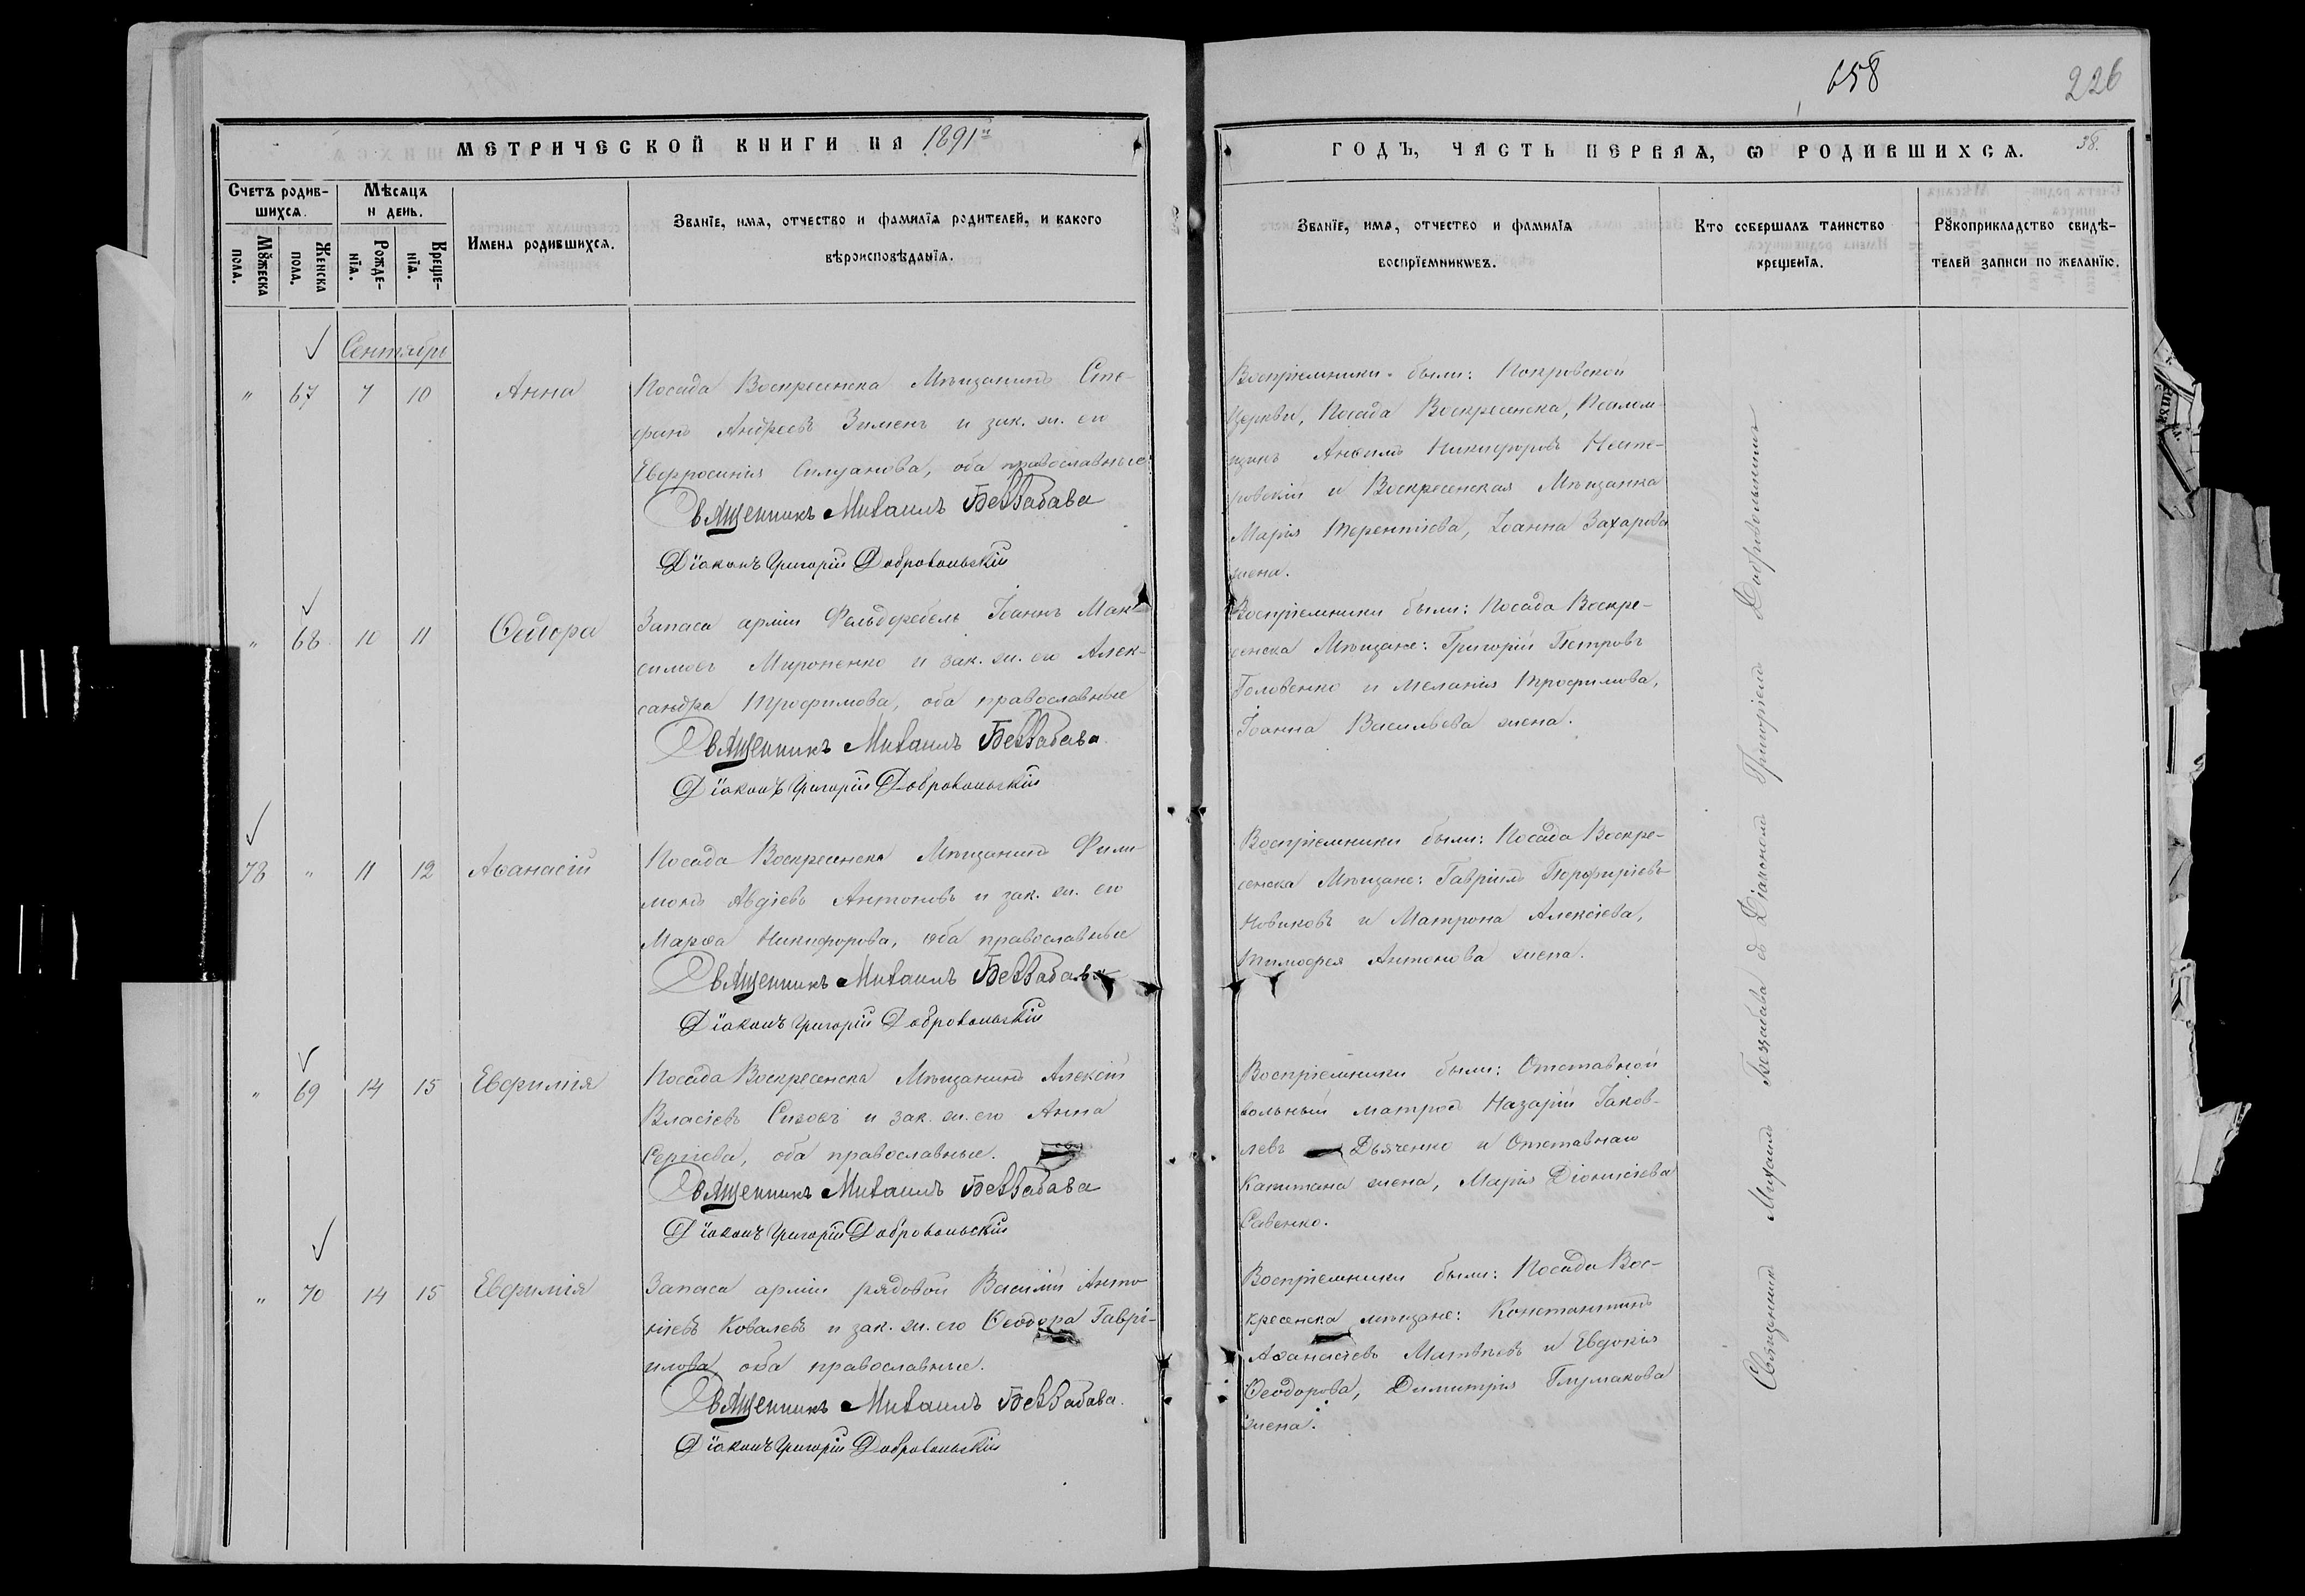 658
226
38.
МЕТРИЧЕСКОЙ КНИГИ НА 1891й
ГОДЪ, ЧАСТЬ ПЕРВАЯ, Ѡ РОДИВШИХСЯ.
Счетъ родив-
шихся.
Мꙋжеска пола.
Женска пола.
Мѣсяцъ
и день.
Рожде-
нїя.
Креще-
нїя.
Имена родившихся.
Званїе, имя, отчество и фамилїя родителей, и какого
вѣроисповѣданїя.
Званїе, имя, отчество и фамилїя
воспрїемникѡвъ.
Кто совершалъ таинство
крещенїя.
Рꙋкоприкладство свидѣ-
телей записи по желанїю.
Сентябрь
" 67 7 10 Анна
Посада Воскресенска Мѣщанинъ Сте-
фанъ Андреевъ Зименъ и зак. ж. его
Евфросинія Силуанова, оба православные
Священникъ Михаилъ Беззабава
Діаконъ Григорій Добровольскій
Воспріемники были: Покровской
Церкви, Посада Воскресенска, Псалом-
щикъ Никифоровъ
и Воскресенская Мѣщанка
Марія Терентіева, Іоанна Захарова
жена.
" 68 10 11 Ѳеодора
Запаса арміи Фельдфебель Іоаннъ Мак-
симовъ Мироненко и зак. ж. его Алек-
сандра Трофимова, оба православные
Священникъ Михаилъ Беззабава
Діаконъ Григорій Добровольскій
Воспріемники были: Посада Воскре-
сенска Мѣщане: Григорій Петровъ
Головенко и Меланія Трофимова,
Іоанна Васильева жена.
78 " 11 12 Аѳанасій
Посада Воскресенска Мѣщанинъ Фили-
монъ Авдіевъ Антоновъ и зак. ж. его
Марѳа Никифорова, оба православные
Священникъ Михаилъ Беззабава
Діаконъ Григорій Добровольскій
Воспріемники были: Посада Воскре-
сенска Мѣщане: Гавріилъ Порфиріевъ
Новиковъ и Матрона Алексіева,
Тимофея Антонова жена.
" 69 14 15 Евфимія
Посада Воскресенска Мѣщанинъ Алексій
Власіевъ Сизовъ и зак. ж. его Анна
Сергіева, оба православные.
Священникъ Михаилъ Беззабава
Діаконъ Григорій Добровольскій
Воспріемники были: Отставной
вольный матросъ Назарій Іаков-
левъ Дьяченко и Отставнаго
Капитана жена, Марія Діонисіева
Савенко.
" 70 14 15 Евфимія
Запаса арміи рядовой Василій Анто-
ніевъ Ковалевъ и зак. ж. его Ѳеодора Гаврі-
илова, оба православные.
Священникъ Михаилъ Беззабава.
Діаконъ Григорій Добровольскій
Воспріемники были: Посада Вос-
кресенска мѣщане: Константинъ
Аѳанасіевъ Матвѣевъ и Евдокія
Ѳеодорова, Димитрія Глумакова
жена.
Священникъ Михаилъ Беззабава съ Діакономъ Григоріемъ Добровольскимъ